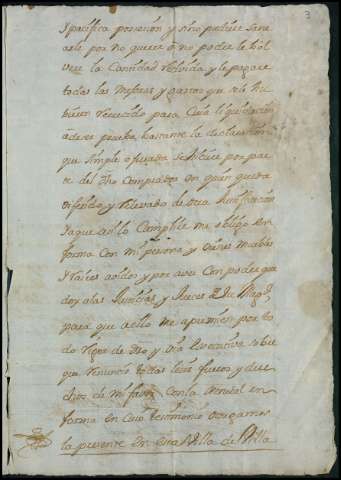 3
Pacifica posesion y si no pudiere sane
arle por no querer o no poder le bol
vere la Cantidad rebibida y le pagare
todas las mejoras y gastos que se le hu
bieren recrecido para Cuia liquidacion
a de ser prueba bastante la declaracion
que simple o jurada se hiciere por par
te del dho Comprador en quien queda
diferido y relevado de otra Justificacion
Ya que asi lo Cumplire me obligo en
forma con mi persona y vienes muebles
Y raices avidos y por aver con poder que
doy a las Justicias y Jueces de Su Magd
para que a ello me apremien por to
do rigor de dro y via executiva sobre
que renuncio todas leies fueros y dere
chos de mi favor con la general en
forma en Cuio testimonio otorgamos
la presente en esta Villa de